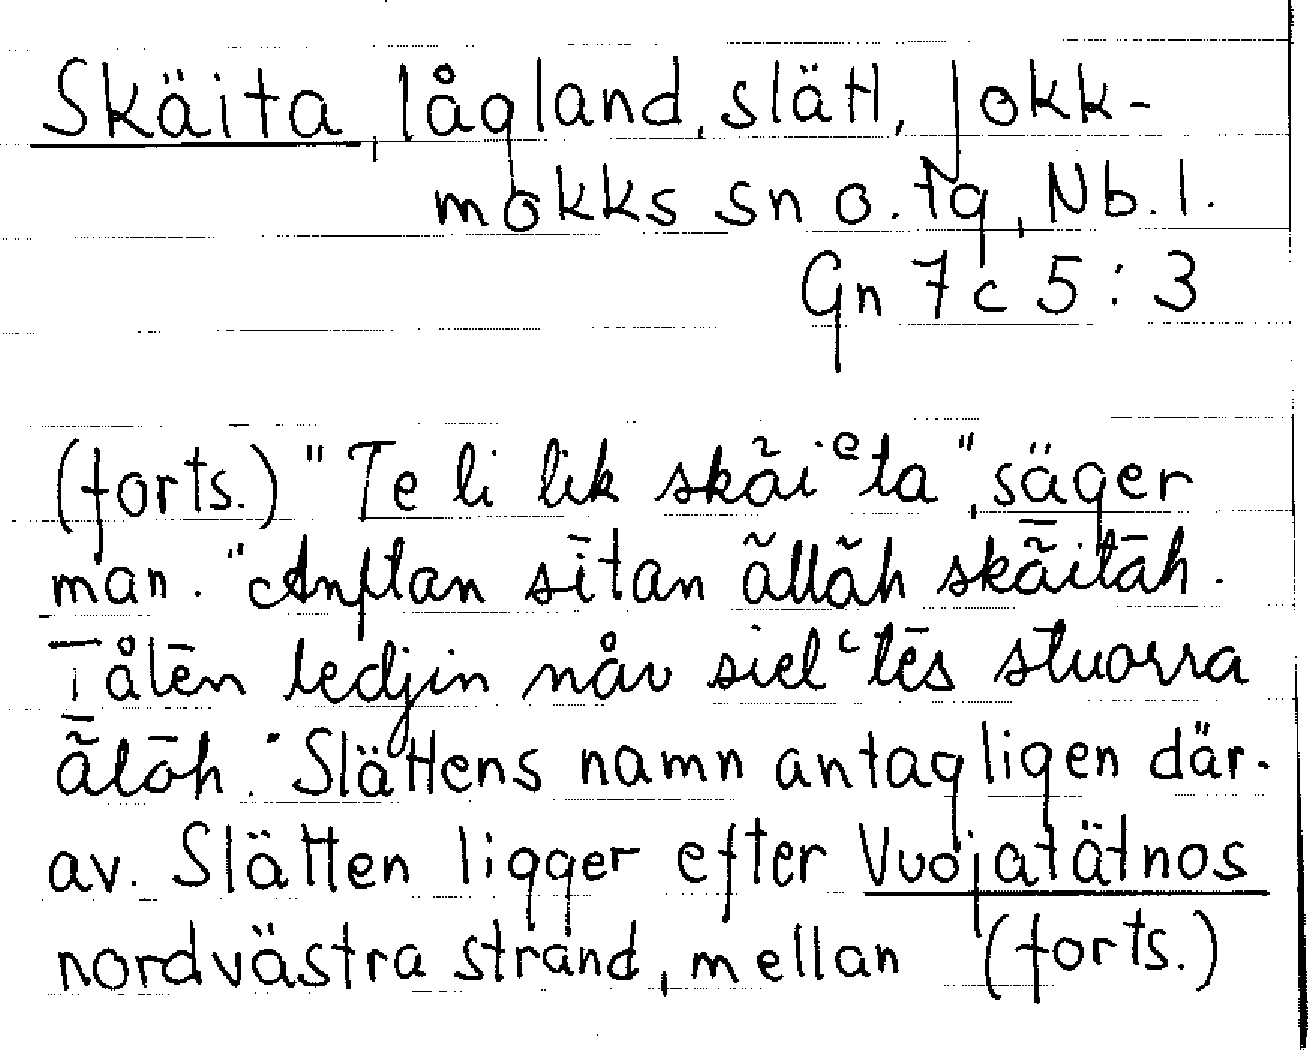 Skäita, lågland, slätt, Jokk-
mokks sn o. tg, Nb. l.
Gn 7 c 5 : 3
(forts.) "Te li lik skãiᵉta", säger
man. "Anftan sītan ãllãh skãitāh.
Tålēn ledjin nåv sielʿtēs stuorra
ãlōh." Slättens namn antagligen där-
av. Slätten ligger efter Vuojatätnos
nordvästra strand, mellan (forts.)